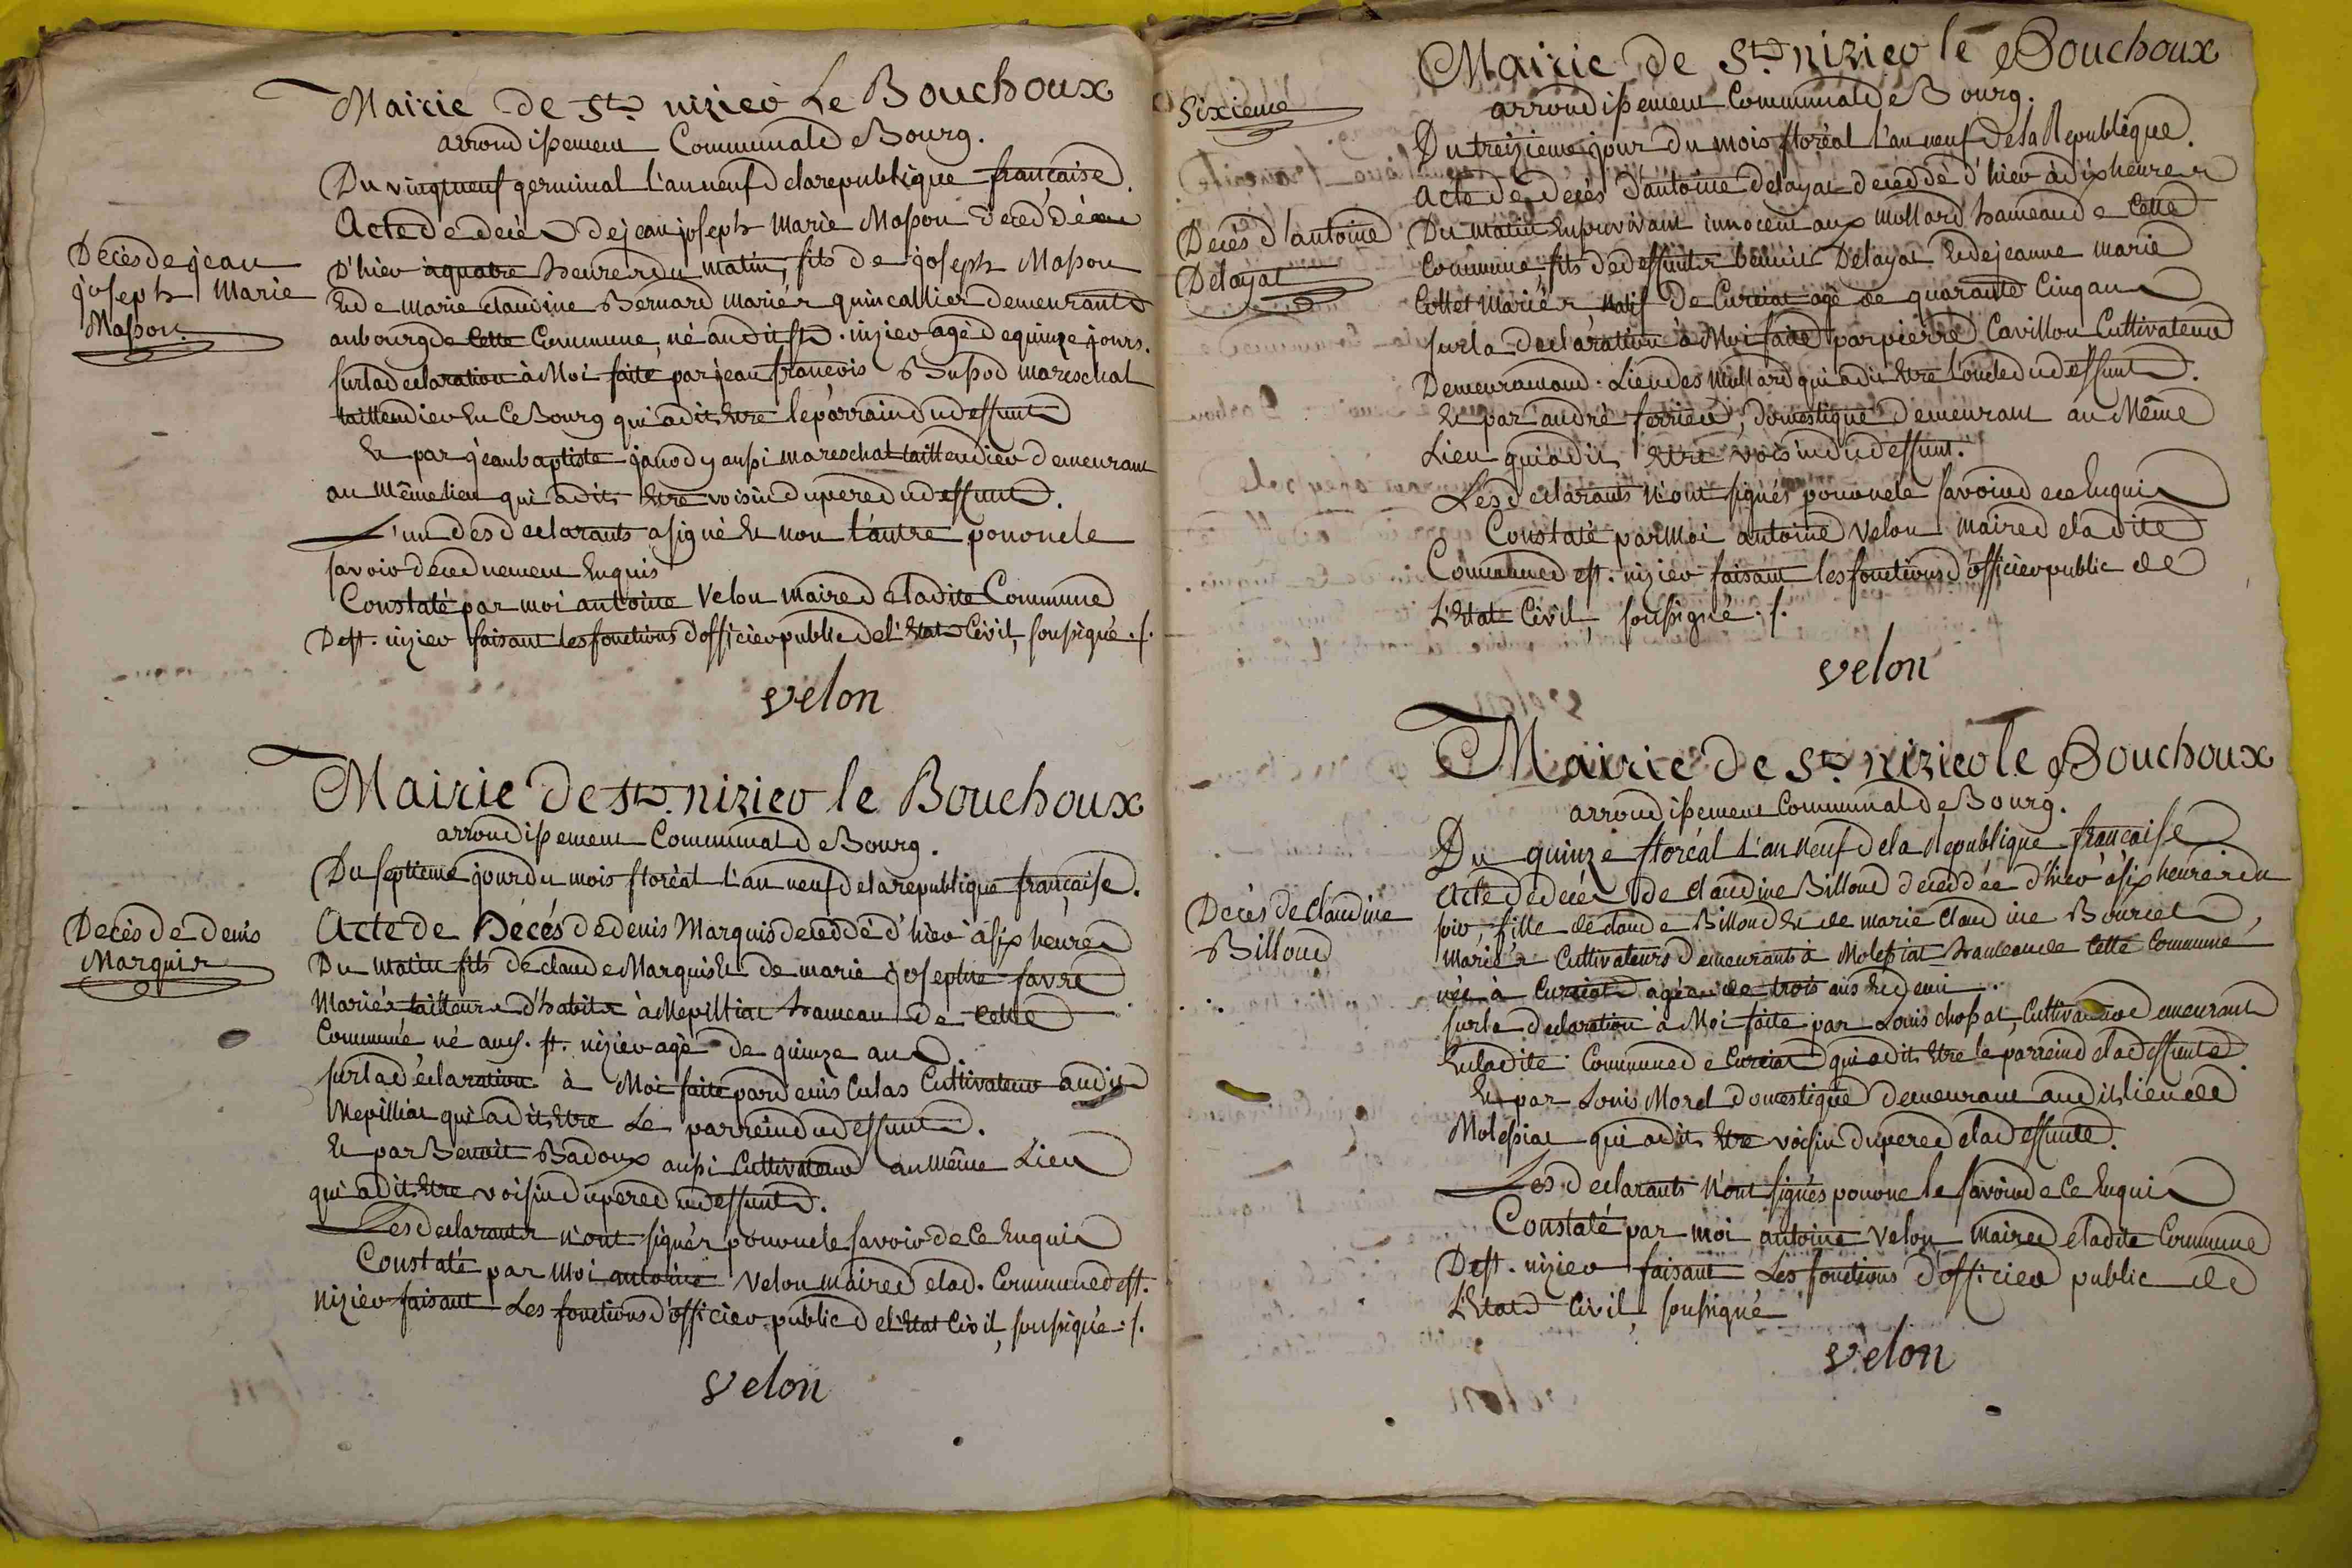 Mairie de St. nizier Le Bouchoux
arrondissement Communal de Bourg.
Du vingt neuf germinal l'an neuf de la republique française.
Acte de decès de jean joseph Marie Masson decedé
d'hier a quatre heures du matin, fils de joseph Masson
Et de Marie claudine Bernard mariés quincallier demeurants
au bourg de Cette Commune, né audit St. nizier agé de quinze jours.
sur la declaration à Moi faite par jean francois Bussod mareschal
taillendier En Ce Bourg qui a dit Etre le parrain du deffunt
Et par jean baptiste janody aussi mareschal taillendier demeurant
au Même lieu qui a dit Etre voisin du pere du deffunt.
L'un des declarants a signé Et non l'autre pour ne le
savoir de ce duement Enquis
Constaté par moi antoine Velon maire de la dite Commune
De st. nizier faisant les fonctions d'officier public de l'Etat Civil, soussigné ./.
velon
Decès de jean
joseph Marie
Masson
Mairie de St. nizier le Bouchoux
arrondissement Communal de Bourg.
Du septieme jour du mois floréal l'an neuf de la republique française.
Acte de Décés de denis Marquis decedé d'hier à six heures
Du matin fils de claude Marquis Et de marie josephte favre
Mariés tailleurs d'habits à Mepilliat hameau de Cette
Commune né aud. st. nizier agé de quinze ans.
sur la déclaration à Moi faite par denis Culas Cultivateur audit
Mepilliat qui a dit Etre Le parrein du deffunt.
Et par Benoit Badoux aussi Cultivateur au même Lieu
qui a dit Etre voisin du pere du deffunt.
Les declarants n'ont signés pour ne le savoir de Ce Enquis
Constaté par Moi antoine Velon maire de lad. Commune de st.
nizier faisant Les fonctions d'officier public de l'Etat Civil, soussigné ./.
velon
Decès de denis
Marquis
Sixieme
Mairie de St. nizier le Bouchoux
arrondissement Communal de Bourg.
Du treizieme jour du mois floréal l'an neuf de la Republique.
Acte de decés d'antoine delayat decedé d'hier à dix heures
Du matin En son vivant innocent aux mollard hameau de Cette
Commune, fils de deffunts benoit Delayat Et de jeanne marie
Cottet Mariés natif de Curciat agé de quarante Cinq ans
sur la declaration à Moi faite par pierre Cavillon Cultivateur
Demeurant aud. Lieu des Mollard qui a dit Etre l'oncle du deffunt.
Et par andré ferrier, domestique demeurant au Même
Lieu qui a dit Etre voisin du deffunt.
Les declarants n'ont signés pour ne le savoir de ce Enquis
Constaté par Moi antoine Velon maire de la dite
Commune de st. nizier faisant les fonctions d'officier public de
L'Etat Civil, soussigné ./.
velon
Decès d'antoine
Delayat
Mairie de St. nizier le Bouchoux
arrondissement Communal de Bourg.
Du quinze floréal l'an neuf de la Republique française
Acte de decés de claudine Billoud decedée d'hier à six heures du
soir, fille de claude Billoud Et de marie claudine Bourcet,
mariés Cultivateurs demeurants à Molessiat hameau de Cette Commune
née à Curciat agée de trois ans Et demi.
sur la declaration à Moi faite par Louis chossat, Cultivateur demeurant
En la dite Commune de Curciat qui a dit Etre le parrein de la deffunte.
Et par Louis Morel domestique demeurant audit lieu de
Molessiat qui a dit Etre voisin du pere de la deffunte.
Les declarants n'ont signés pour ne le savoir de Ce Enquis
Constaté par moi antoine Velon, maire de la dite Commune
De st. nizier faisant Les fonctions d'officier public de
L'Etat Civil, soussigné
velon
Decès de claudine
Billoud